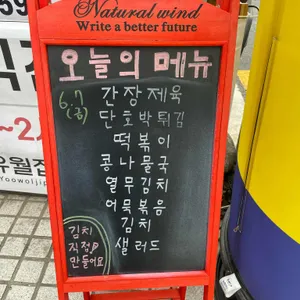 Natural wind
Write a better future
오늘의 메뉴
6.7
(금)
간장제육
단호박튀김
떡볶이
콩나물국
열무김치
어묵볶음
김치
샐러드
김치
직접
만들어요
59
유월집
Yoowolji